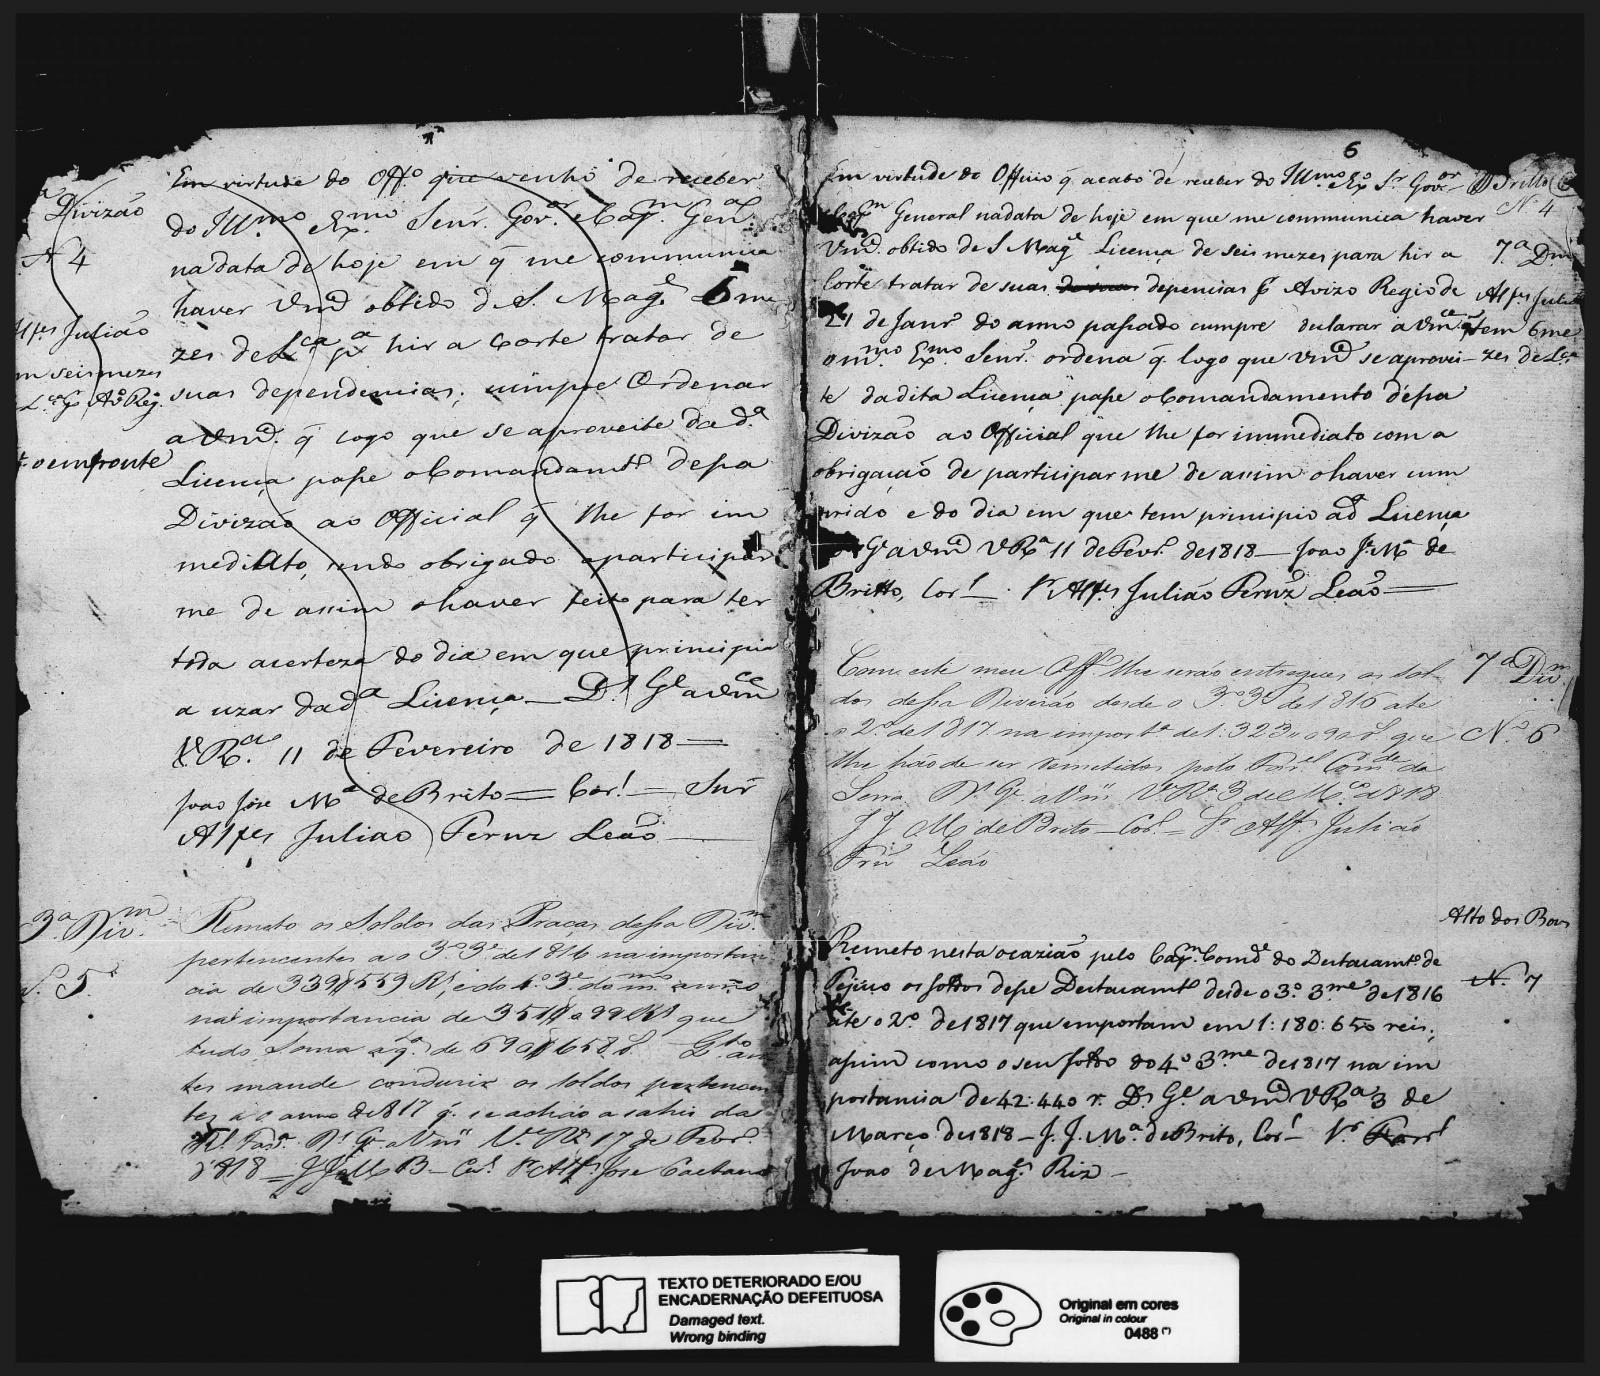 ª Divizaõ
N 4
Alfes Juliaõ
m seis mezes
L.ca p Avº Reg.
to emfronte
Em virtude do Off.º que venho de receber
do Ill.mo Ex.mo Senr. Gov.or e Cap.m Gen.al
na data de hoje em q̃ me communica
haver Vmce obtido d S. Mag.e 6 me
zes de L.ca pa hir a Corte tratar de
suas dependencias; cumpre Ordenar
a Vmce. q̃ logo que se aproveite da d.ª
Licença passe o Comandamto dessa
Divizaõ ao Official q̃ lhe for im
mediato, sendo obrigado a participar
me de assim o haver feito para ter
toda acerteza do dia em que principia
a uzar da d.ª Licença — D.s G.e a Vmce
V.ª R.ca 11 de Fevereiro de 1818 —
Joao Joze M.ª de Brito = Cor.l — Snr
Alfes Juliao Fernz Leaõ —
3ª Div.m
N. 5
Remeto os Soldos das Praças dessa Div.m
pertencentes ao 3º 3.e de 1816 na importan
cia de 339$559 Rs, e do 1º 3.e do m.mo anno
na importancia de 351$099 Rs que
tudo Soma a q.ª de 690$658 rs.
tes mande conduzir os soldos pertencen
tes ao anno de 1817 q̃ se achão a sahir da
Rl. Fazda. Ds Ge a Vm V.ª Rª 17 de Febr.
d 1818 — J J M B — Cor. Sr Alfs Joze Caetano
6
Em virtude do Officio q̃ acabo de receber do Ill.mo Ex.º Sr Gov.or
Cap.m General na data de hoje em que me communica haver
Vmce. obtido de S Mag.e Licença de seis mezes para hir a
Corte tratar de suas de suas depencias p Avizo Regio de
21 de Janrº do anno passado cumpre declarar a Vmce q̃
o m.mo Ex.mo Senr. ordena q̃ logo que Vmce se aprovei
te da dita Licença passe o Comandamento déssa
Divizaõ ao Official que lhe for immediato com a
obrigaçaõ de participar me de assim o haver cum
prido e do dia em que tem principio a dª Licença
Ge a Vmce V Rª 11 de Fevr. de 1818 — Joao Je Mª de
Britto, Cor.l — Sr Alfes Juliaõ Fernz Leaõ —
N. 4
7.ª Dm
Alfes Juliaõ
tem 6 me
zes de Lca
Com este meu Off.º lhe seraõ entregues os sol
dos dessa Divizaõ desde o 3º 3e de 1816 ate
o 2º de 1817 na import.ª de 1:323$090 rs. que
lhe haõ de ser remetidos pelo Com.de da
Serra Ds Ge a Vm V.ª Rª 3 de M.ço d 1818
J J Mª de Brito — Cor.l — Sr Alfs Juliaõ
Frñ Leaõ
7ª Div.m
N.º 6
Alto dos Bois
N. 7
Remeto nesta ocaziaõ pelo Cap.m Comde do Destacamto de
Pejuco os soldos desse Destacamto desde o 3º 3.me de 1816
áte o 2º de 1817 que emportam em 1:180:650 reis;
assim como o seu soldo do 4º 3me de 1817 na im
portancia de 42:440 r. Ds Ge a Vmce V Rª 3 de
Março de 1818 — J. J. Mª. de Brito, Cor.l — Sr Forr.l
Joao de Mag.es Riz —
TEXTO DETERIORADO E/OU
ENCADERNAÇÃO DEFEITUOSA
Damaged text.
Wrong binding
Original em cores
Original in colour
0488 (*)